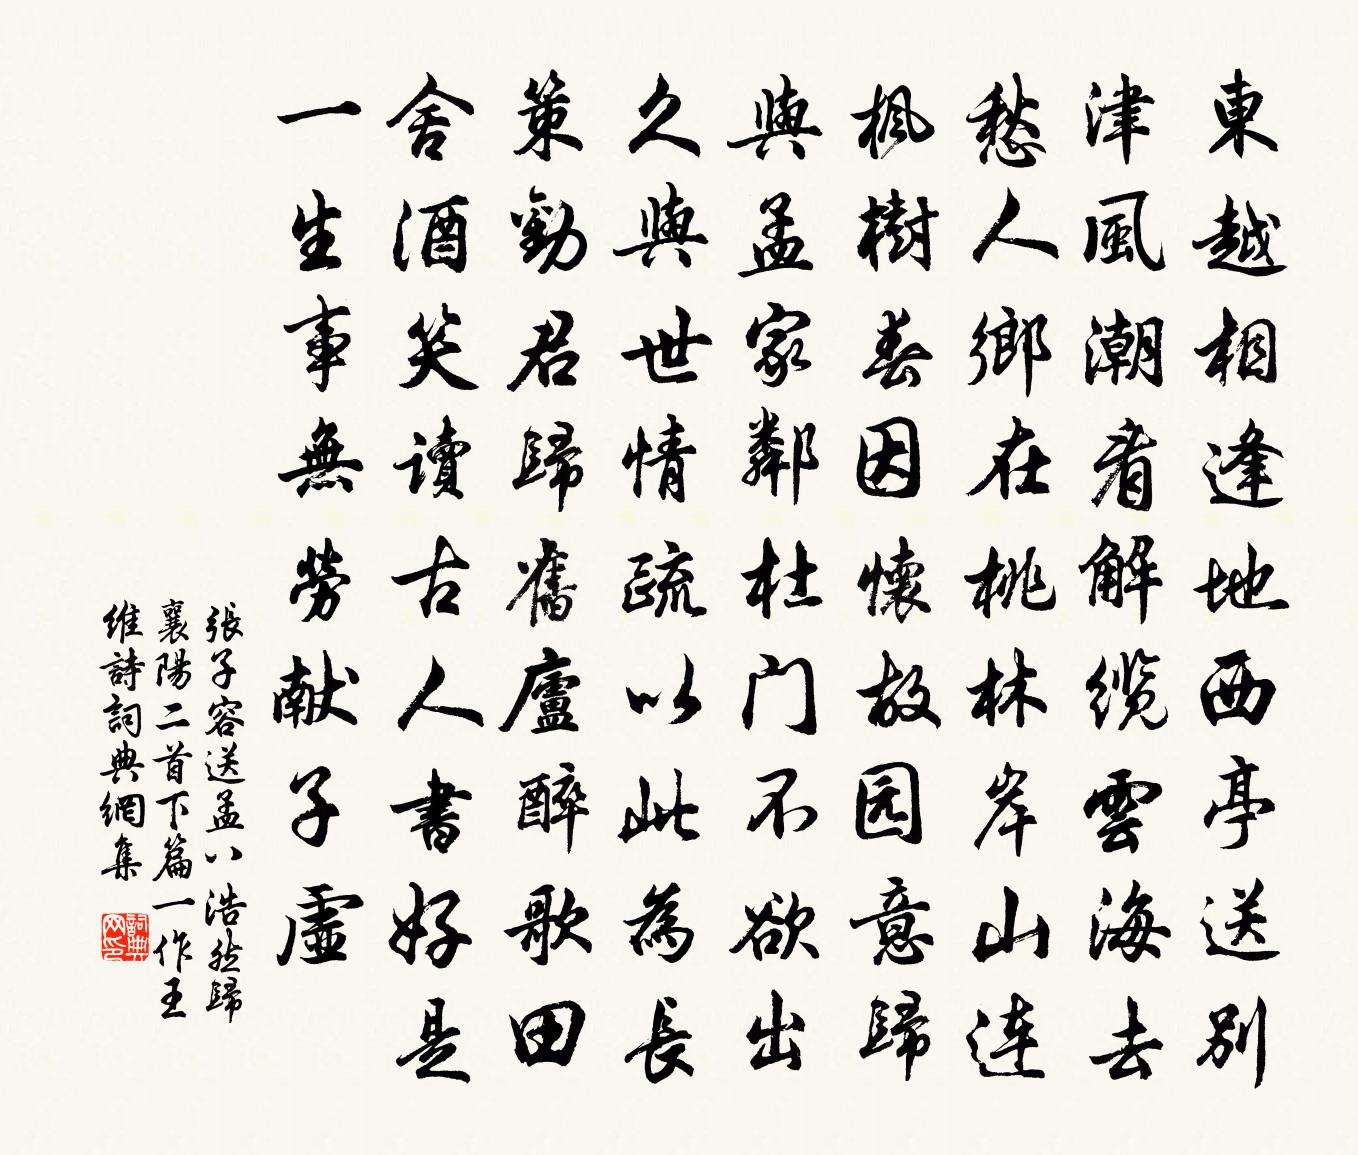 東越相逢地西亭送別
津風潮看解缆雲海去
愁人鄉在桃林岸山连
枫樹春因懷故园意歸
與孟家鄰杜门不欲出
久與世情疏以此為長
策勸君歸舊廬醉歌田
舍酒笑讀古人書好是
一生事無勞献子虛
張子容送孟八浩然歸
襄陽二首下篇一作王
維詩詞典網集